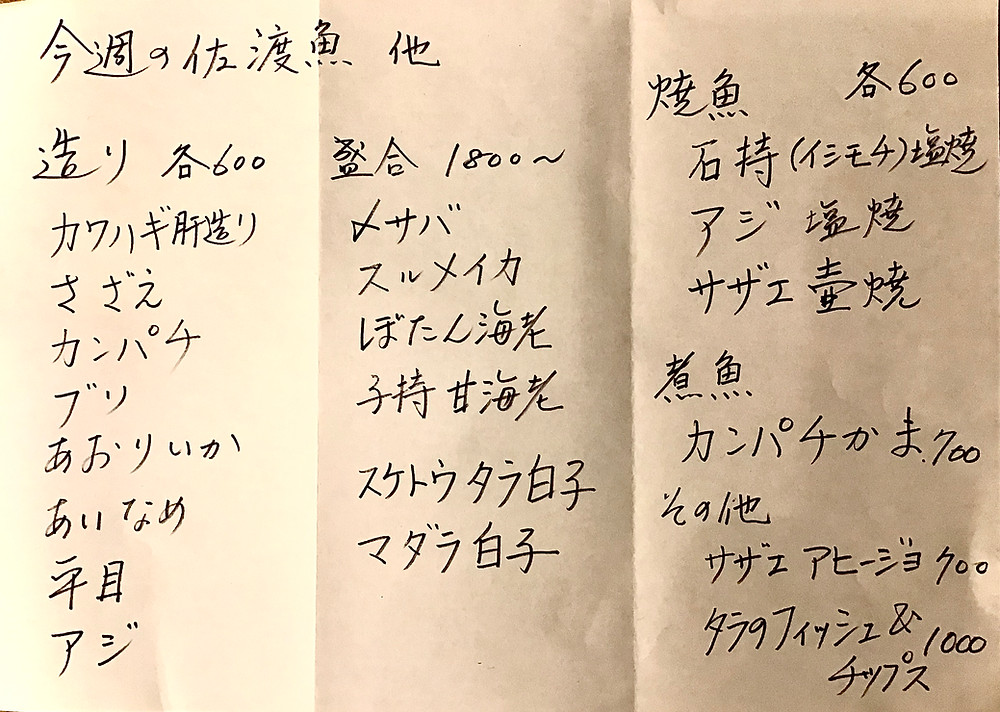 今週の佐渡魚 他
造り 各600
カワハギ肝造り
さざえ
カンパチ
ブリ
あおりいか
あいなめ
平目
アジ
盛合 1800〜
〆サバ
スルメイカ
ぼたん海老
子持甘海老
スケトウタラ白子
マダラ白子
焼魚 各600
石持(イシモチ)塩焼
アジ 塩焼
サザエ壷焼
煮魚
カンパチかま.700
その他
サザエ アヒージョ 700
タラのフィッシュ&
チップス 1000